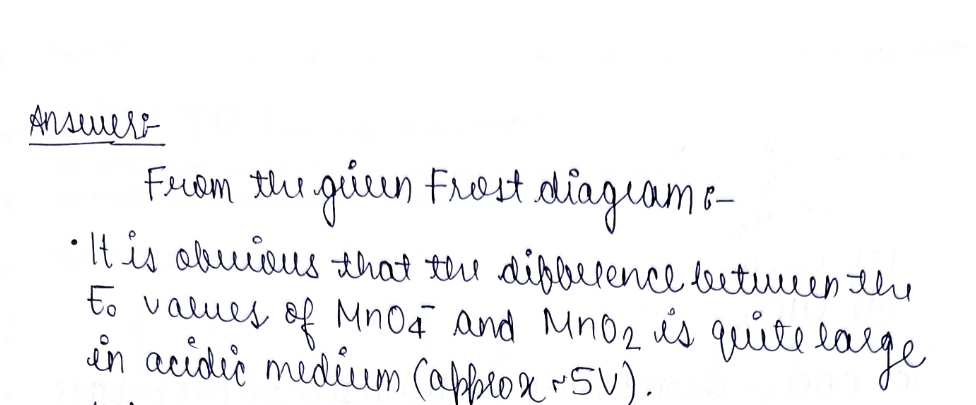 Answer:-
From the given Frost diagram:-
• It is obvious that the difference between the
E₀ values of MnO₄⁻ and MnO₂ is quite large
in acidic medium (approx ~5V).